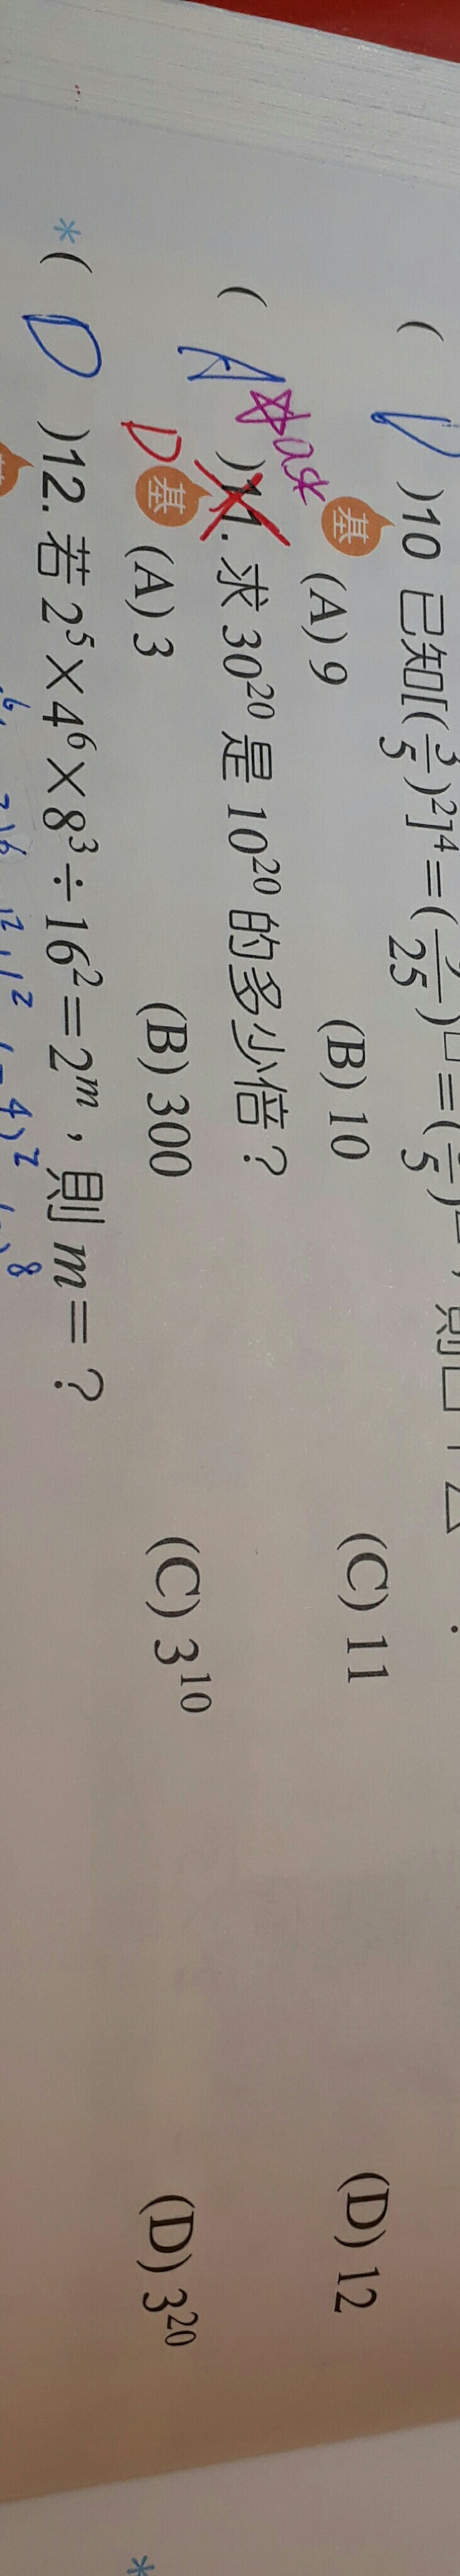 ( D )10 已知[(3/5)²]⁴=(9/25)□=(3/5)
基 (A) 9 (B) 10 (C) 11 (D) 12
☆ask
( A )11. 求 30²⁰ 是 10²⁰ 的多少倍？
D 基 (A) 3 (B) 300 (C) 3¹⁰ (D) 3²⁰
*( D )12. 若 2⁵×4⁶×8³÷16²=2ᵐ，則 m=？
*